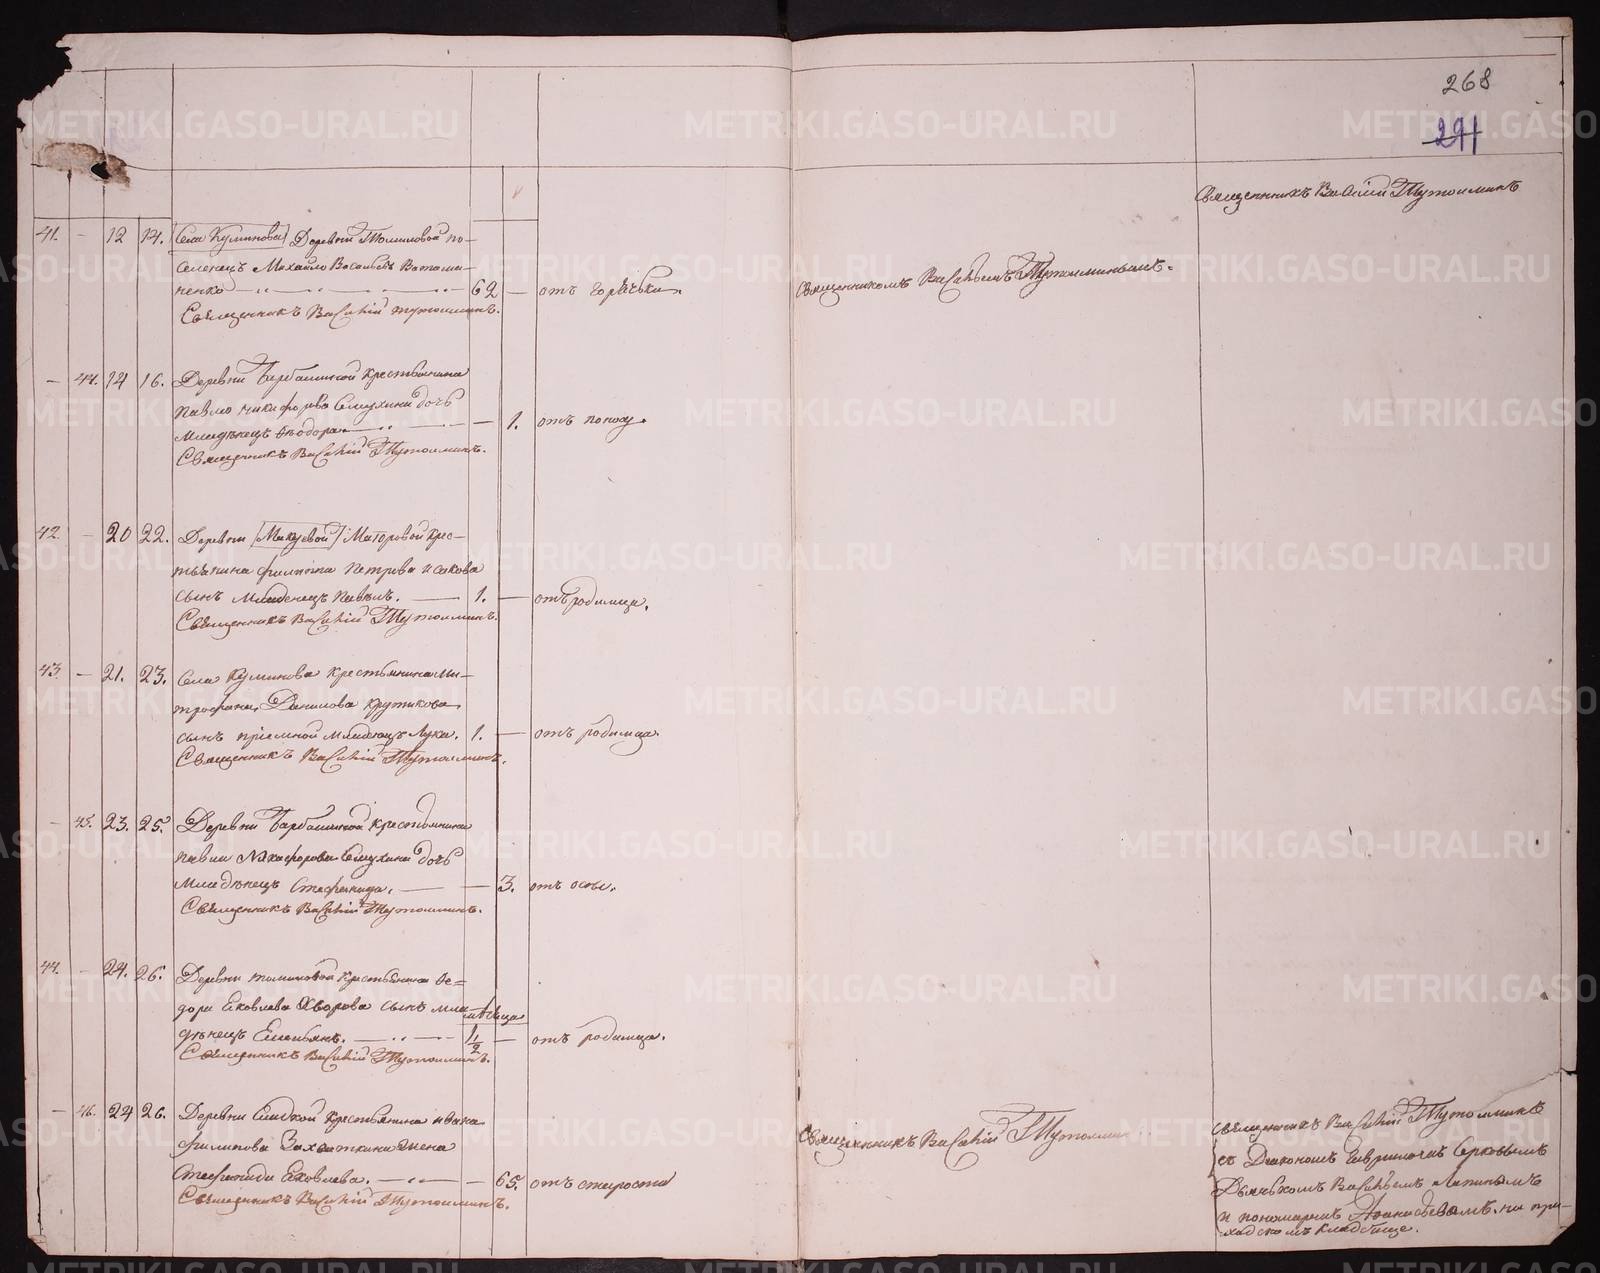 268
291
Священникъ Василій Тутолминъ
41. - 12 14. Села Куминова Деревни Томиловой по-
селенецъ Михайло Васильевъ
ненко 62 - отъ горячьки.
Священникомъ Васильемъ Тутолминымъ.
Священникъ Василій Тутолминъ.
- 44. 14 16. Деревни Барбашиной крестьянина
Павла Никифорова дочь
младенецъ Ѳеодора - 1. отъ поносу.
Священникъ Василій Тутолминъ.
42. - 20 22. Деревни Маторовой крес-
тьянина Филиппа Петрова Исакова
сынъ младенецъ Павелъ. 1. - отъ родимца.
Священникъ Василій Тутолминъ.
43. - 21. 23. Села Куминова крестьянина Ми-
трофана Данилова Крутикова
сынъ пріемной младенецъ Лука. 1. - отъ родимца.
Священникъ Василій Тутолминъ.
- 45. 23. 25. Деревни Барбашиной крестьянина
Павла Никифорова дочь
младенецъ Стефанида. - 3. отъ оспы.
Священникъ Василій Тутолминъ.
44. - 24. 26. Деревни Томиловой крестьянина Ѳе-
дора Яковлева Хворова сынъ мла-
мѣсяца
денецъ Емельянъ. 1/2 - отъ родимца.
Священникъ Василій Тутолминъ.
- 46. 24 26. Деревни крестьянина Ивана
Филипова жена
Стефанида Яковлева. - 65. отъ старости
Священникъ Василій Тутолминъ.
Священникъ Василій Тутолмин
Священникъ Василій Тутолминъ
съ Діакономъ Серковымъ
Дьячькомъ Васильемъ Лапинымъ
и пономаремъ на при-
ходскомъ кладбище.
METRIKI.GASO-URAL.RU